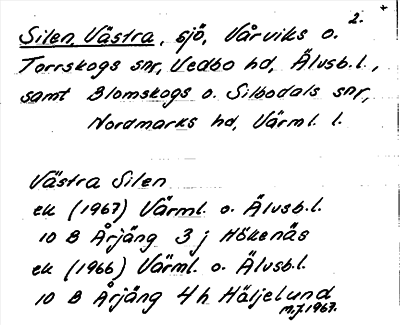 2.
Silen, Västra, sjö, Vårviks o.
Torrskogs snr, Vedbo hd, Älvsb. l.,
samt Blomskogs o. Silbodals snr,
Nordmarks hd, Värml. l.
Västra Silen
ek (1967) Värml. o. Älvsb. l.
10 B Årjäng 3 j Hökenäs
ek (1966) Värml. o. Älvsb. l.
10 B Årjäng 4 h Häljelund
M.J. 1967.